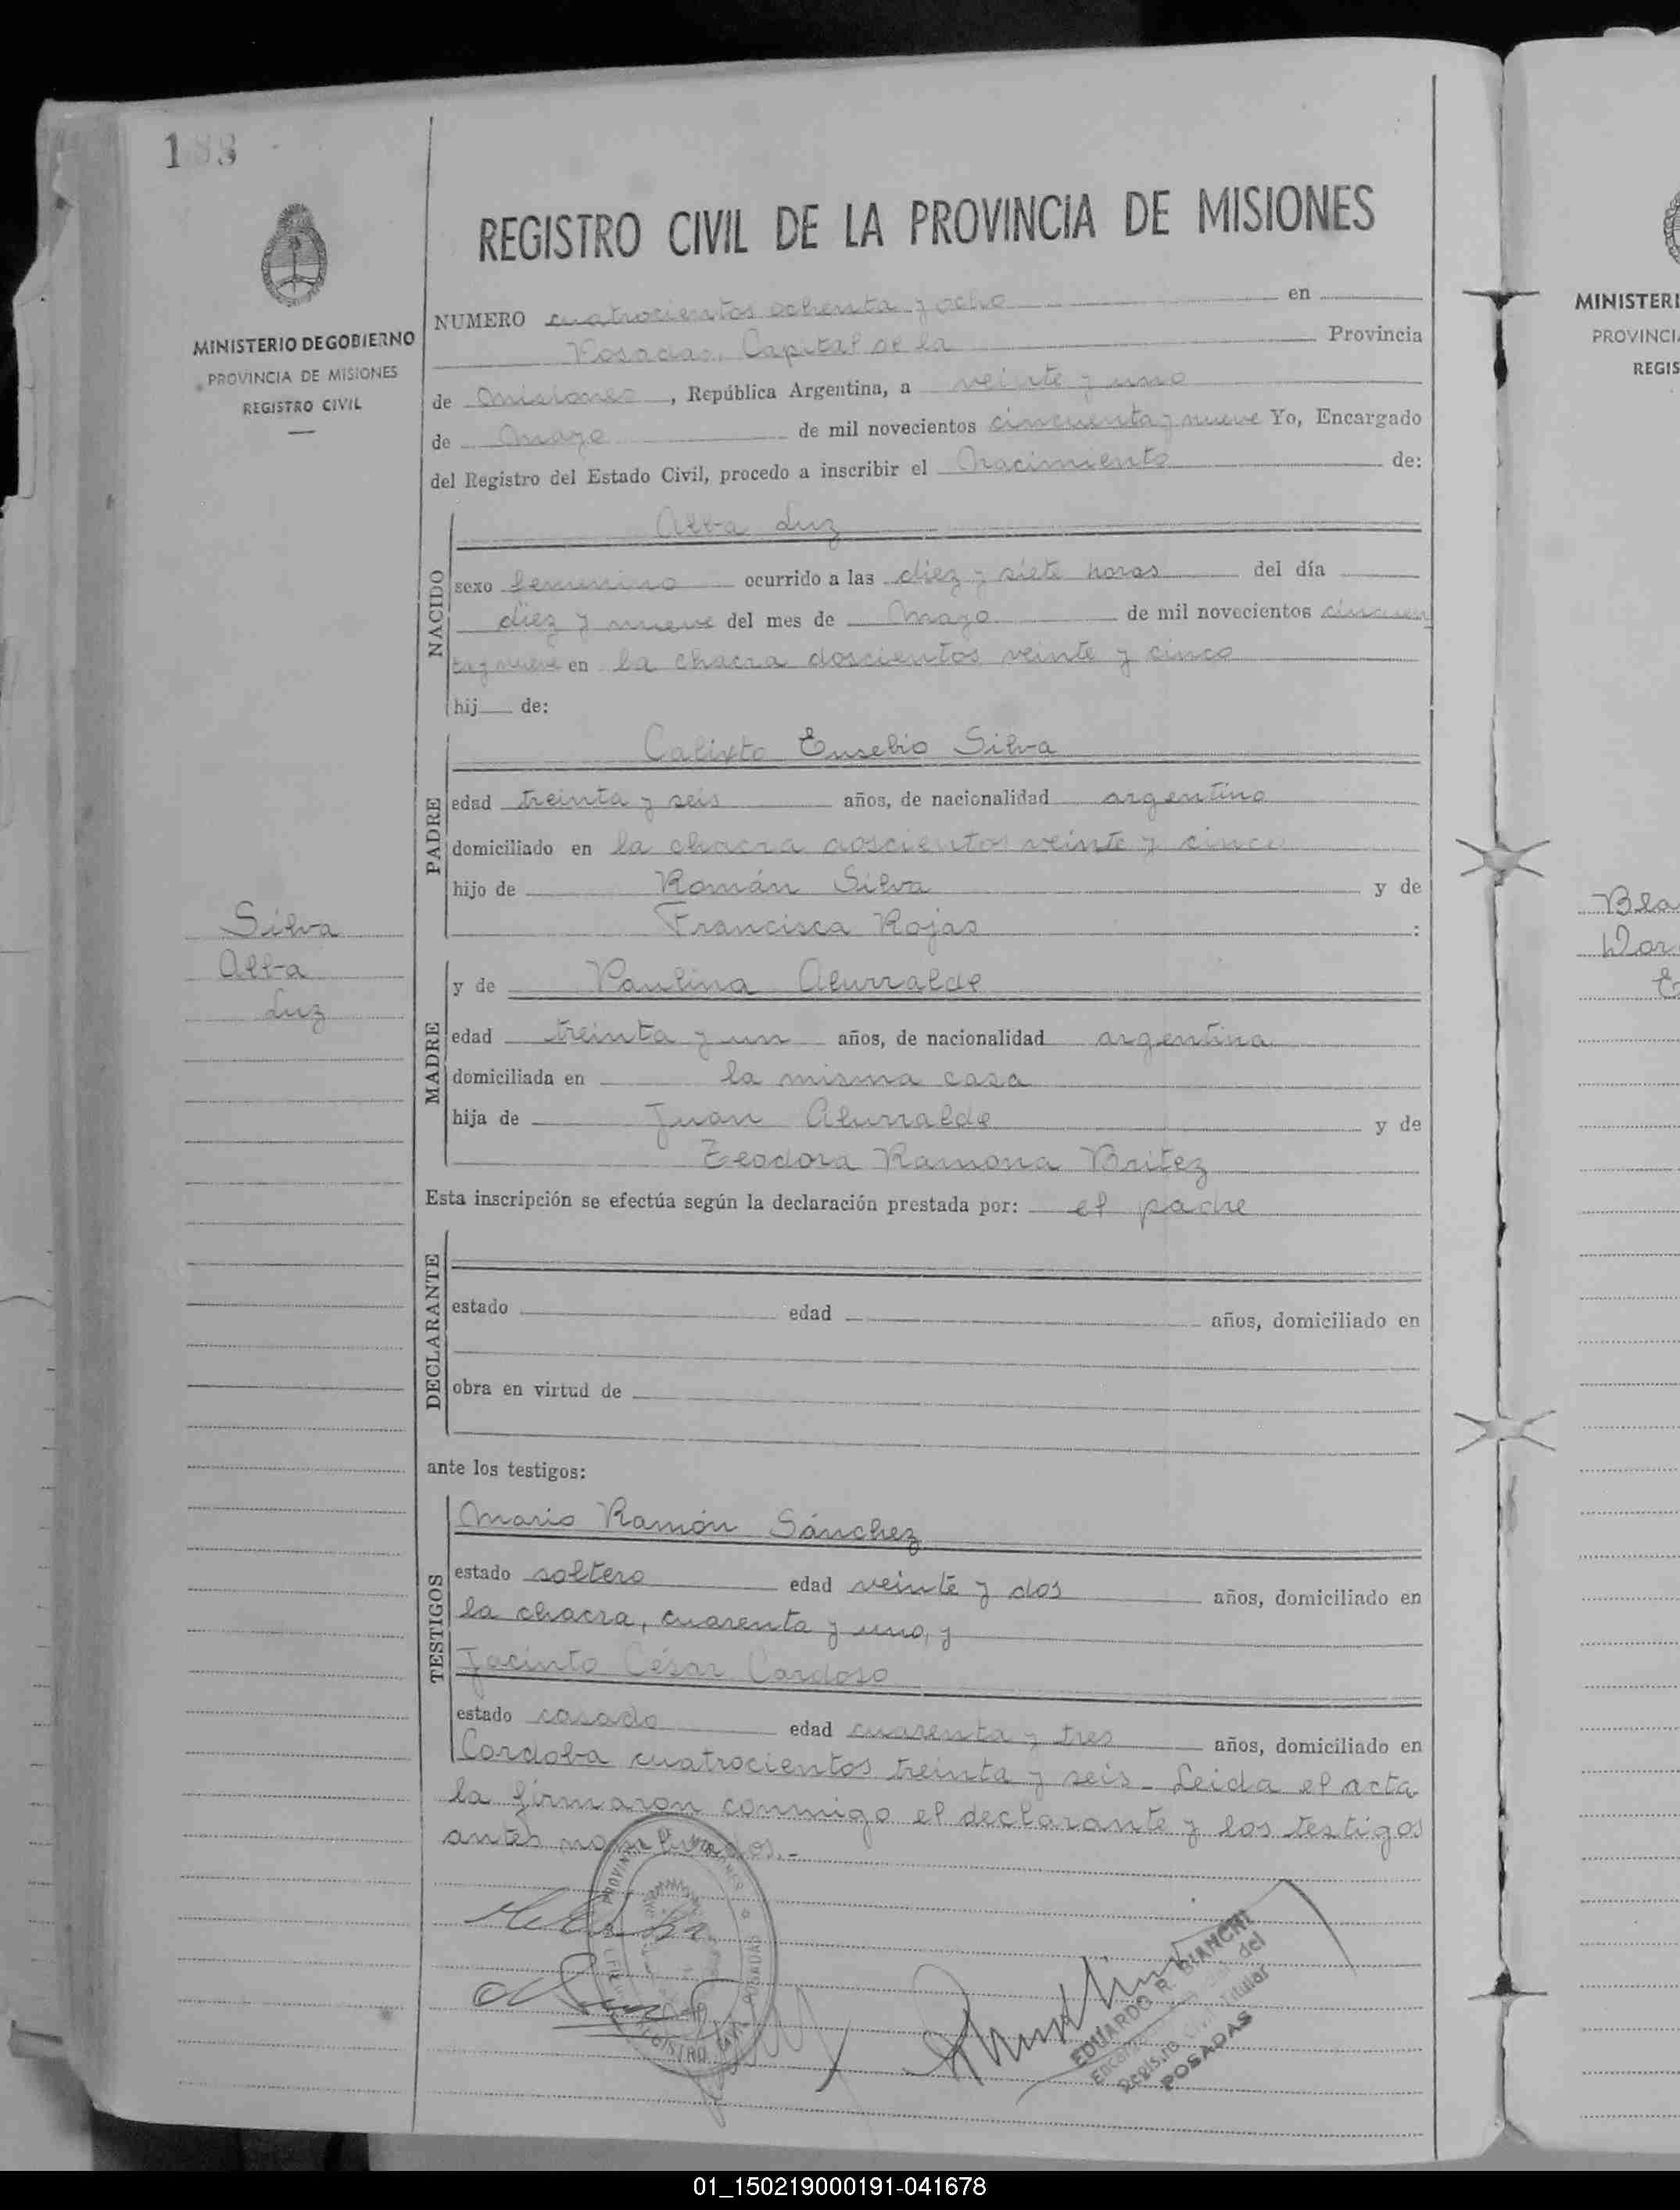 188
REGISTRO CIVIL DE LA PROVINCIA DE MISIONES
MINISTERIO DE GOBIERNO
PROVINCIA DE MISIONES
REGISTRO CIVIL
NUMERO cuatrocientos ochenta y ocho en
Posadas, Capital de la Provincia
de Misiones, República Argentina, a veinte y uno
de Mayo de mil novecientos cincuenta y nueve Yo, Encargado
del Registro del Estado Civil, procedo a inscribir el Nacimiento de:
NACIDO
Alba Luz
sexo femenino ocurrido a las diez y siete horas del día
diez y nueve del mes de Mayo de mil novecientos cincuen
ta y nueve en la chacra doscientos veinte y cinco
hij de:
PADRE
Calixto Eusebio Silva
edad treinta y seis años, de nacionalidad argentino
domiciliado en la chacra doscientos veinte y cinco
hijo de Román Silva y de
Francisca Rojas :
Silva
Alba
Luz
MADRE
y de Paulina Alurralde
edad treinta y un años, de nacionalidad argentina
domiciliada en la misma casa
hija de Juan Alurralde y de
Teodora Ramona Britez
Esta inscripción se efectúa según la declaración prestada por: el padre
DECLARANTE
estado edad años, domiciliado en
obra en virtud de
ante los testigos:
TESTIGOS
Mario Ramón Sánchez
estado soltero edad veinte y dos años, domiciliado en
la chacra, cuarenta y uno, y
Jacinto César Cardoso
estado casado edad cuarenta y tres años, domiciliado en
Cordoba cuatrocientos treinta y seis - Leida el acta
la firmaron conmigo el declarante y los testigos
antes nombrados.-
PROVINCIA DE MISIONES
REGISTRO CIVIL POSADAS
EDUARDO R. BIANCHI
Encargado del
Registro Civil Titular
POSADAS
MINISTERI
PROVINCI
REGIS
Bla
Dor
E
01_150219000191-041678